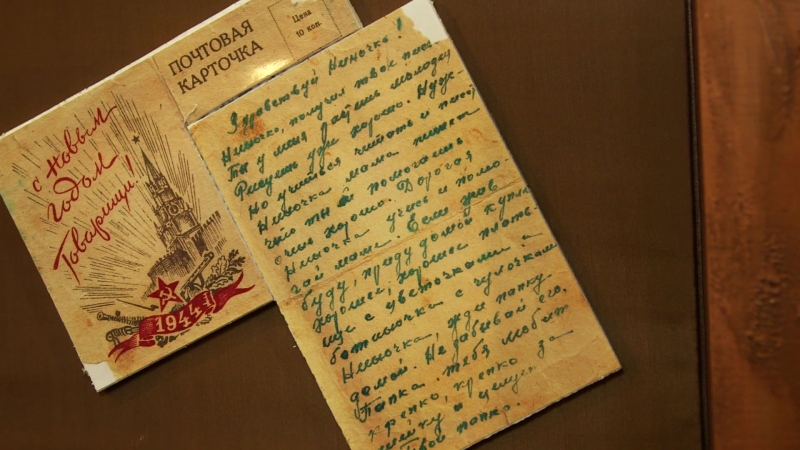 ПОЧТОВАЯ
КАРТОЧКА
Цена
10 коп.
с Новым
годом
Товарищи!
1944 г.
Здравствуй Ниночка!
Ниночка, получил твое
Ты у меня молодец
Рисуешь уже хорошо. Нуж-
но учиться читать и
Ниночка мама пишет
что ты ей помогаешь
очень хорошо. Дорогая
Ниночка учись и помо-
гай маме. Если жив
буду, приду домой куплю
хорошее, хорошее плать-
ице с цветочками и
ботиночки с чулочками
Ниночка, жди папку
домой. Не забывай его,
Папка тебя любит
крепко, крепко за
и целует
Твой папка.